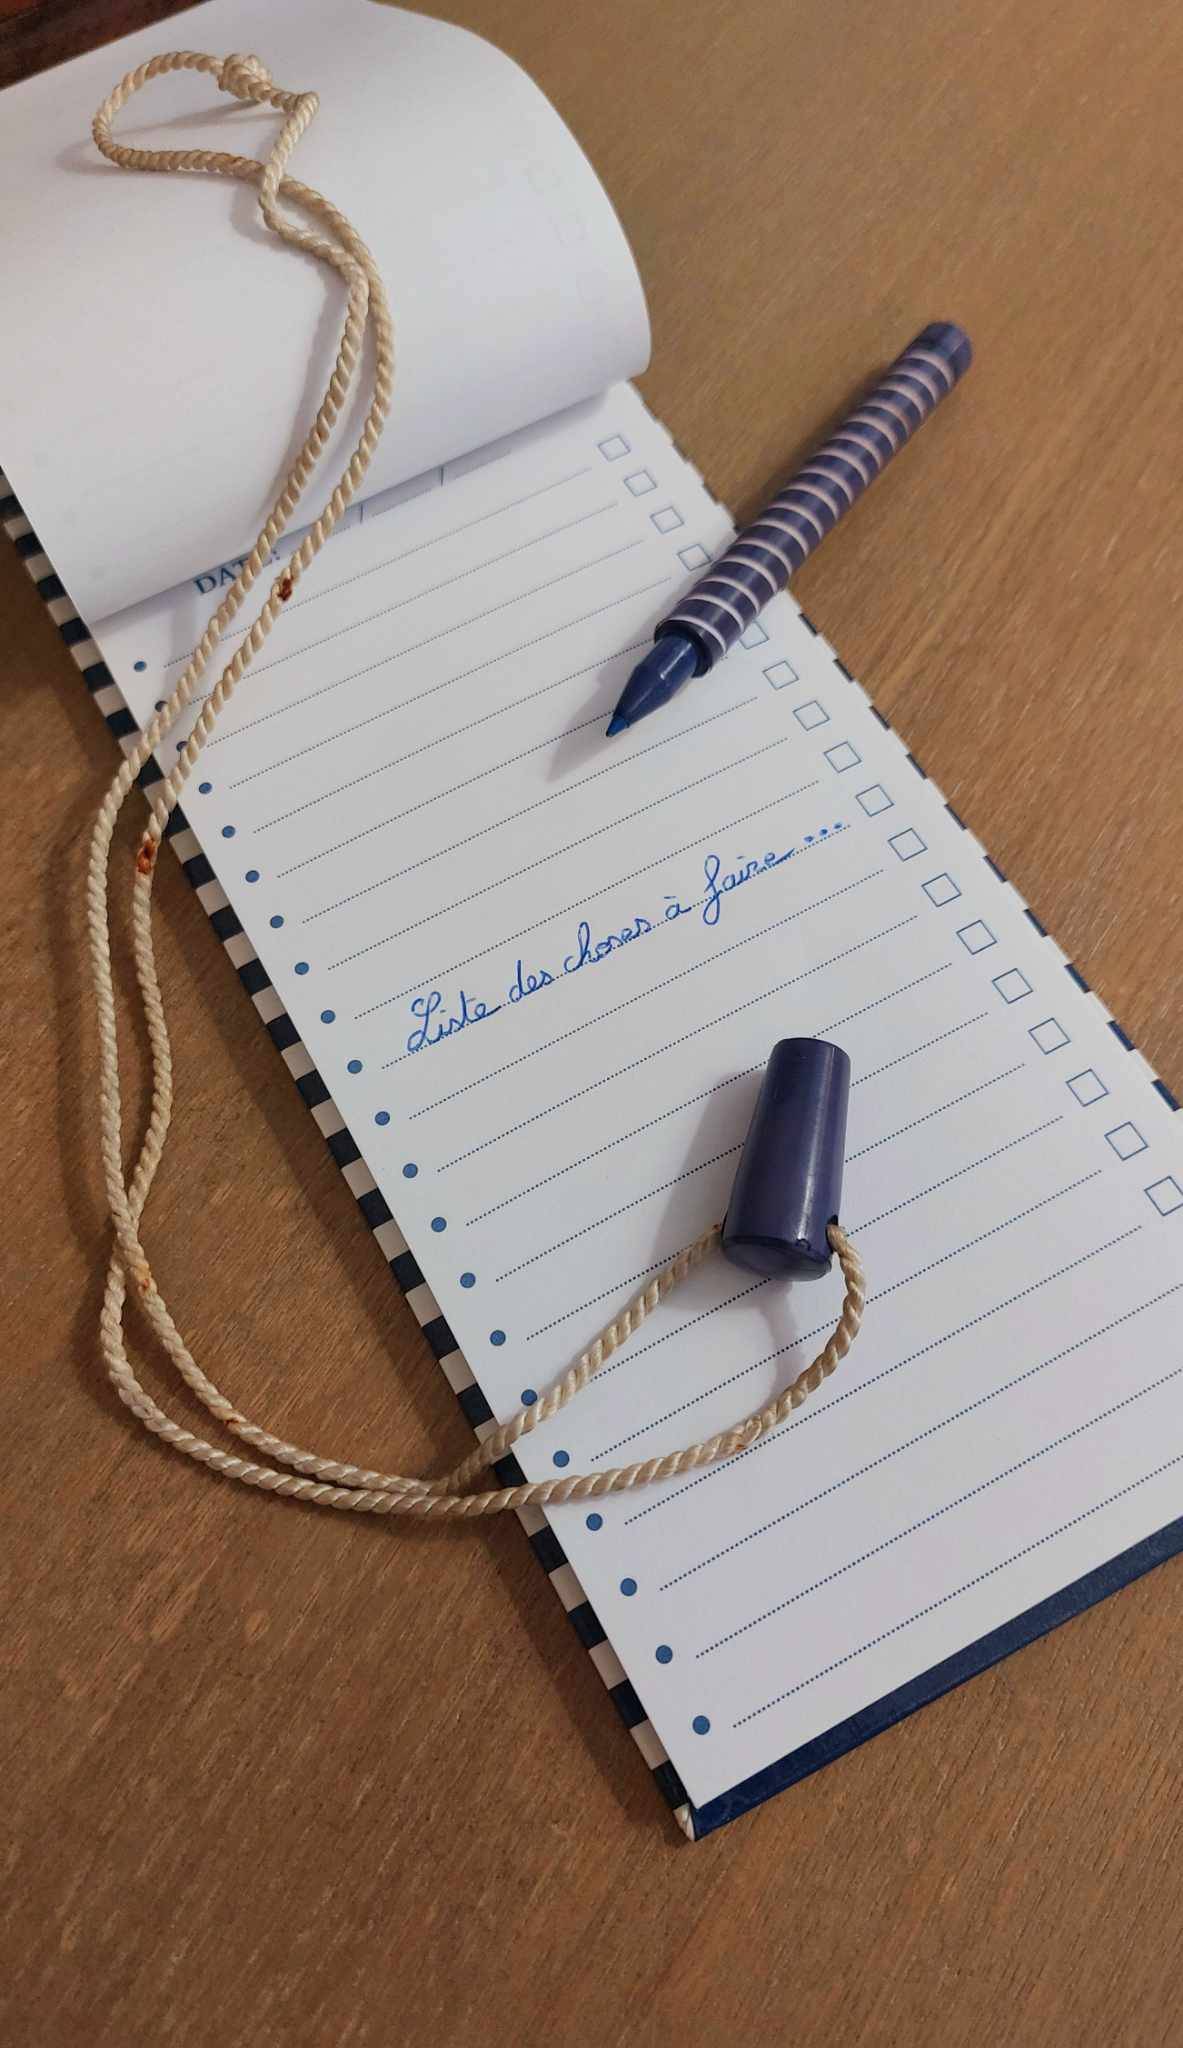 DATE:
Liste des choses à faire...